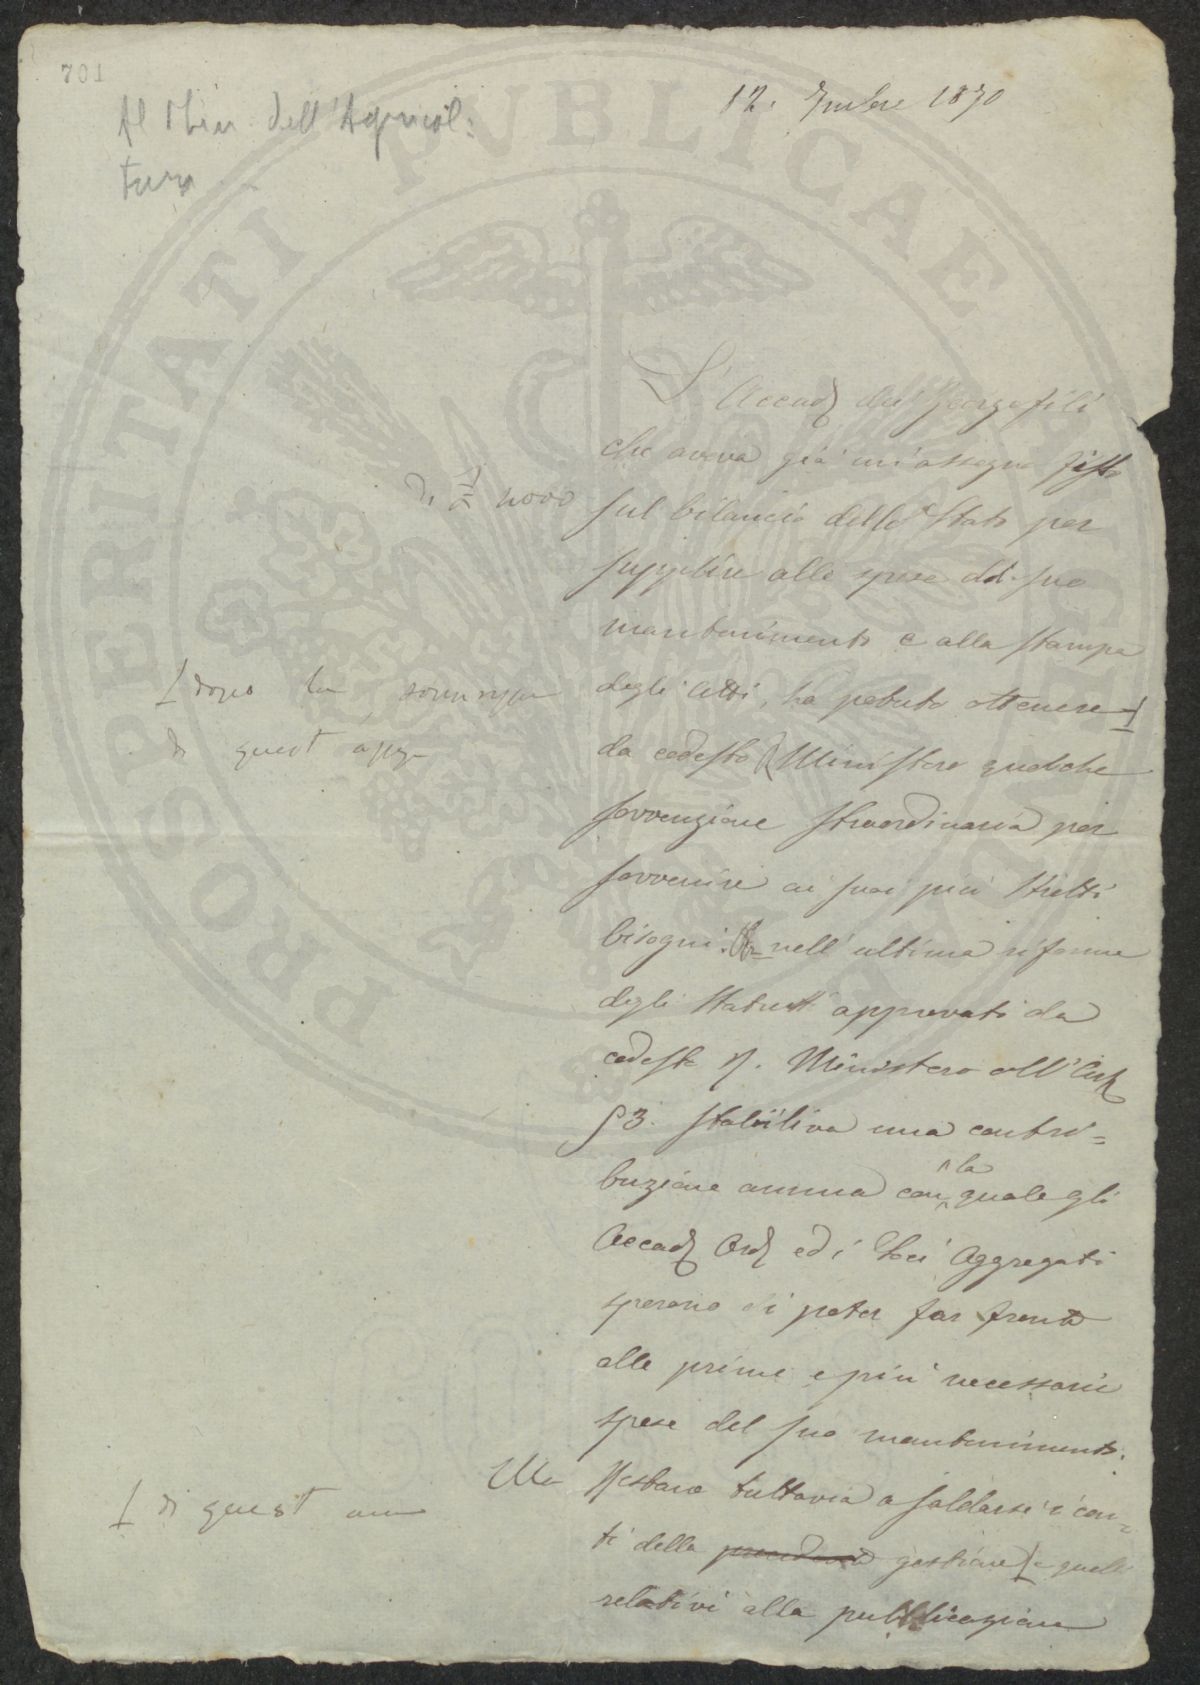 701
Al Min dell'Agricol:
tura
12. 1870
L'Accad dei Georgofili
che aveva già un'assegno fisso
di novo
sul bilancio dello Stato per
supplire alle spese del suo
mantenimento e alla stampa
degli Atti, ha potuto ottenere
dopo la
di quest
da codesto Ministero qualche
sovvenzione straordinaria per
sovvenire ai suoi più stretti
bisogni. nell'ultima riforma
degli Statuti approvati da
codesto R. Ministero all'Art
§3. stabiliva una contri=
buzione annua con la quale gli
Accad Ord ed i Soci Aggregati
sperano di poter far fronte
alle prime e più necessarie
spese del suo mantenimento.
Ma Restano tuttavia a saldarsi i con-
di quest
ti della gestione e quelli
relativi alla pubblicazione
PROSPERITATI PUBLICAE AUGENDAE